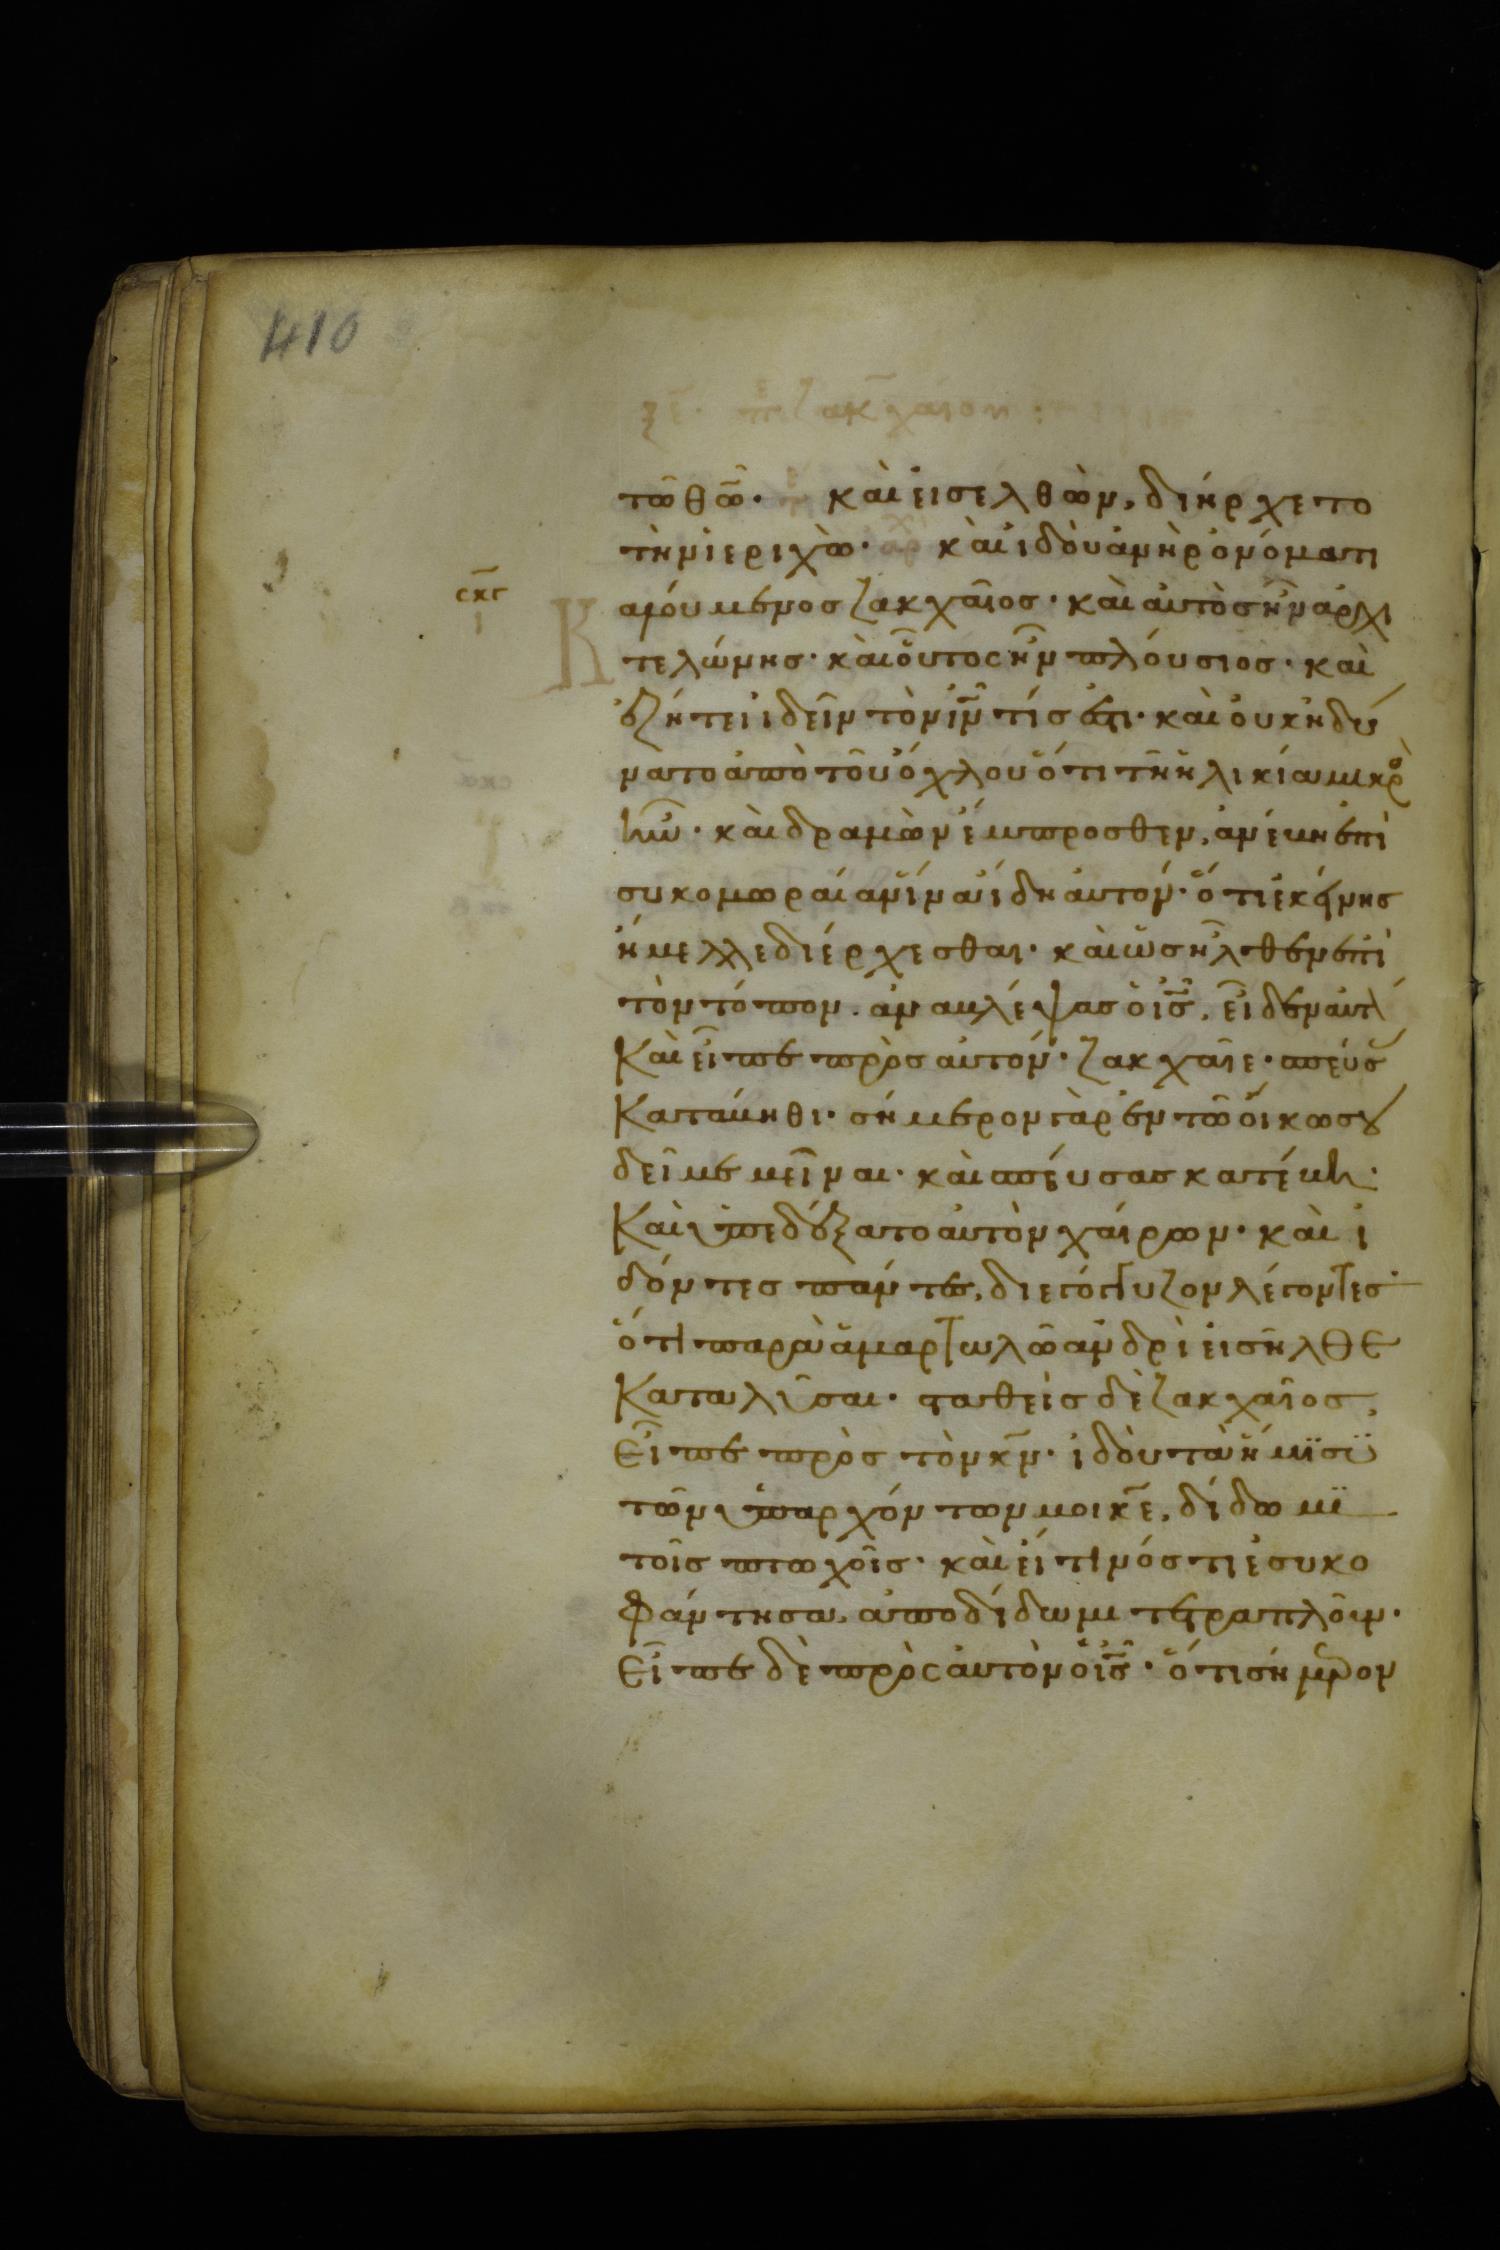 410
ξε. πε ζακχαίου
τῶ θῶ. καὶ εἰσελθὼν, διήρχετο
τὴν ἱεριχὼ. καὶ ἰδοὺ ἀνὴρ ὀνόματι
σκγ
ι
καλούμενος ζακχαῖος. καὶ αὐτὸς ἦν ἀρχι
τελώνης. καὶ οὗτος ἦν πλούσιος. καὶ
ἐζήτει ἰδεῖν τὸν ἰν τίς ἐστι. καὶ οὐκ ἠδύ
νατο ἀπὸ τοῦ ὄχλου ὅτι τῆ ἡλικία μικρὸ
ἦν. καὶ δραμὼν ἔμπροσθεν, ἀνέβη ἐπὶ
συκομωραίαν ἵνα ἴδη αὐτόν. ὅτι ἐκείνης
ἤμελλε διέρχεσθαι. καὶ ὡς ἦλθεν ἐπὶ
τὸν τόπον. ἀναβλέψας ὁ ἰς, εἶδεν αὐτ
Καὶ εἶπε πρὸς αὐτόν. ζακχαῖε. σπεύσ
Κατάβηθι. σήμερον γὰρ ἐν τῶ οἴκω σου
δεῖ με μεῖναι. καὶ σπεύσας κατέβη.
Καὶ ὑπεδέξατο αὐτὸν χαίρων. καὶ ἰ
δόντες πάντες, διεγόγγυζον λέγοντες.
ὅτι παρὰ ἁμαρτωλῶ ἀνδρὶ εἰσῆλθε
Καταλῦσαι. σταθεὶς δὲ ζακχαῖος,
Εἶπε πρὸς τὸν κν. ἰδοὺ τὰ ἡμίϊσϋ
τῶν ὑπαρχόντων μοι κε, δίδωμϊ
τοῖς πτωχοῖς. καὶ εἴ τινός τι ἐσυκο
Φάντησα, ἀποδίδωμι τετραπλοῦν.
Εἶπε δὲ πρὸς αὐτὸν ὁ ἰς. ὅτι σήμερον